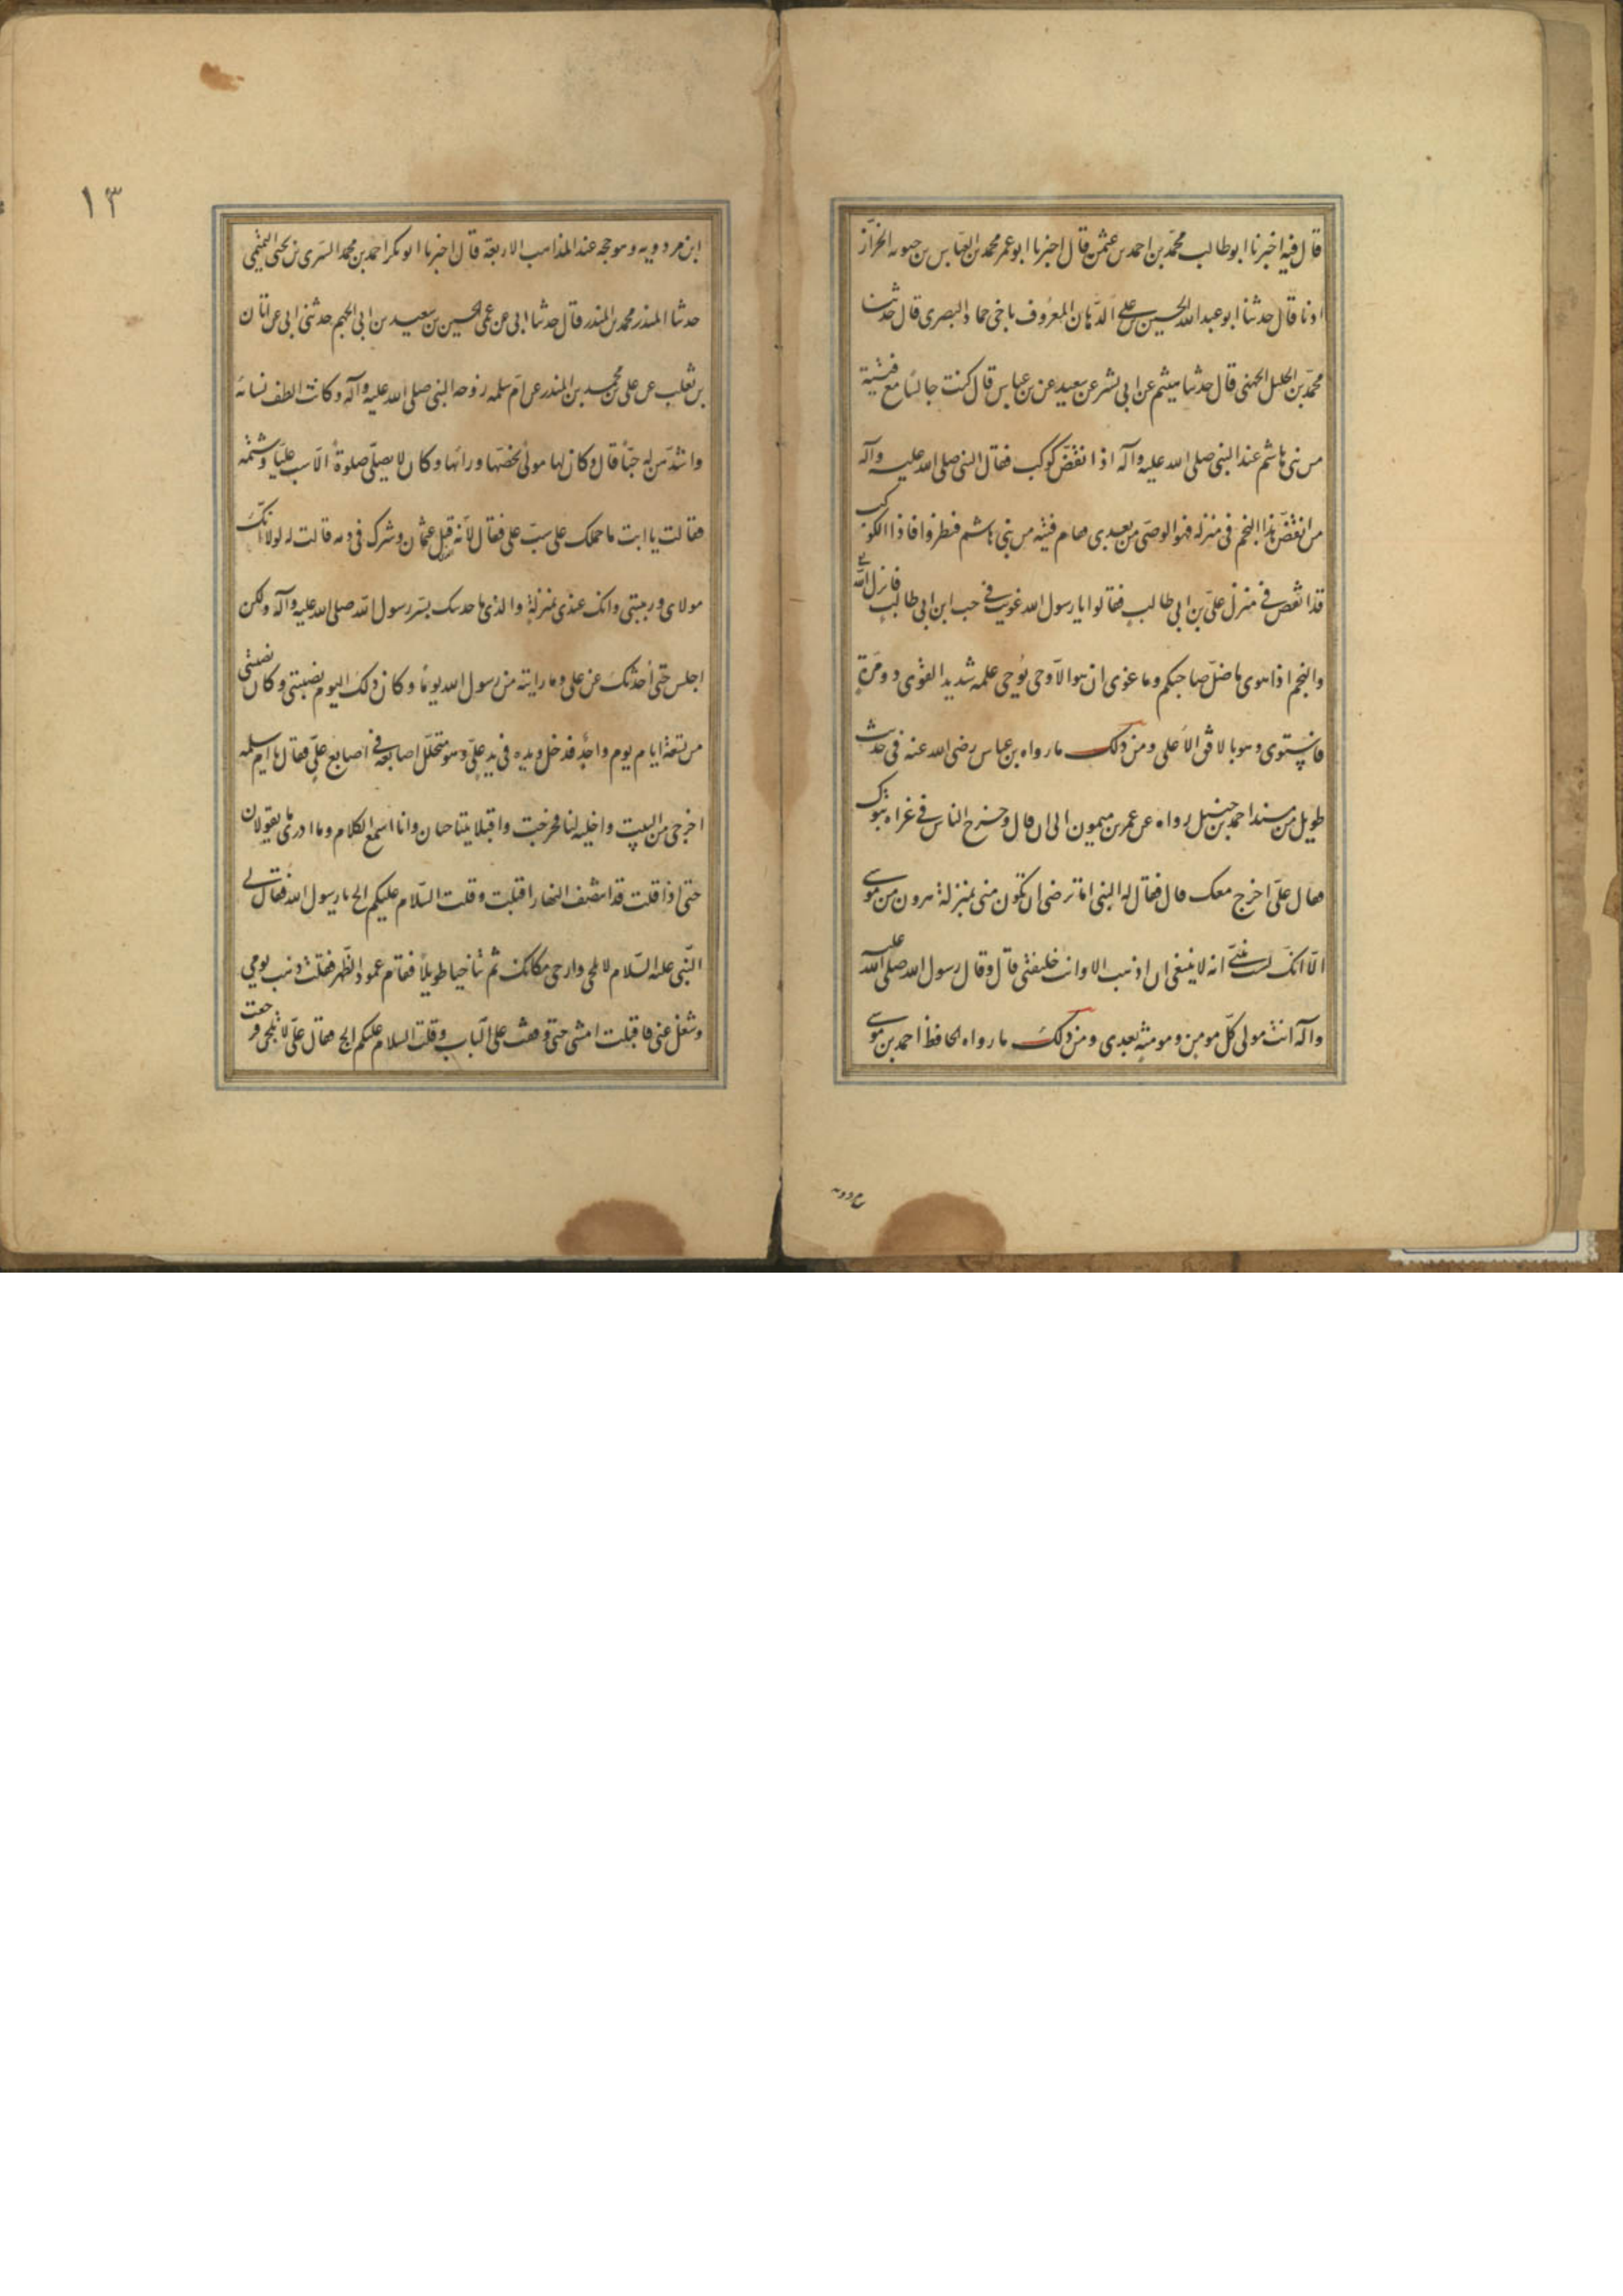 قال فيه اخبرنا ابو طالب محمّد بن احمد بن عثمن قال اخبرنا ابو عمر محمد بن العباس بن حيويه الخزّاز
اذنا قال حدثنا ابو عبد الله الحسين بن علي الدّهان المعروف باخي حماد البصرى قال حدثنا
محمّد بن الخليل الجهنى قال حدثنا هيثم عن ابى بشر عن سعيد عن بن عباس قال كنت جالسا مع فتية
من بنى هاشم عند النبى صلى الله عليه وآله اذ انقضّ كوكب فقال النبى صلى الله عليه وآله
من انقضّ هذا النجم فى منزله فهو الوصى من بعدى فقام فتية من بنى هاشم فنظروا فاذا الكوكب
قد انقض فى منزل علىّ بن ابى طالب فقالوا يا رسول الله غويت فى حب ابن ابى طالب فانزل الله تعالى
والنجم اذا هوى ما ضلّ صاحبكم وما غوى ان هو الا وحى يوحى علمه شديد القوى ذو مرّة
فاستوى وهو بالافق الاعلى ومن ذلك ما رواه بن عباس رضى الله عنه فى حديث
طويل من مسند احمد بن حنبل رواه عن عمر بن ميمون الى ان قال وخرج الناس فى غزاه تبوك
فقال علىّ اخرج معك قال فقال له النبى اما ترضى ان تكون منى بمنزلة هرون من موسى
الّا انّك لست بنبىّ انه لا ينبغى ان اذهب الا وانت خليفتى قال وقال رسول الله صلى الله عليه
وآله انت مولى كلّ مومن ومومنة بعدى ومن ذلك ما رواه الحافظ احمد بن موسى
بن مردويه
١٣
ابن مردويه وهو حجه عند المذاهب الاربعة قال اخبرنا ابو بكر احمد بن محمد السّرى بن يحيى التميمى
حدثنا المنذر محمد بن المنذر قال حدثنا ابى عن عمى الحسين بن سعيد بن ابى الجهم حدثنى ابى عن ابان
بن تغلب عن على بن محمد بن المنذر عن امّ سلمه زوجه النبى صلى الله عليه وآله وكانت الطف نسائه
واشدّهن له حبّا قال وكان لها مولى يحضنها وربّاها وكان لا يصلّى صلوة الّا سب عليّا وشتمه
فقالت يا ابت ما حملك على سبّ على فقال لأنه قتل عثمان وشرك فى دمه قالت له لولا انّك
مولاى وربيتنى وانك عندى بمنزلة والدى ما حدثتك بسرّ رسول الله صلى الله عليه وآله ولكن
اجلس حتى أحدثك عن على وما رايته من رسول الله يومًا وكان ذلك اليوم نصيبتى وكان نصيبتى
من تسعة ايام يوم واحد فدخل ويده فى يد علىّ وهو متخلّل اصابعه فى اصابع علىّ فقال يا ام سلمه
اخرجى من البيت واخليه لنا فخرجت واقبلا يتناجيان وانا اسمع الكلام وما ادرى ما يقولان
حتى اذا قلت قد انتصف النهار اقبلت وقلت السّلام عليكم الج يا رسول الله فقال لى
النّبى عليه السّلام لا تلجى وارجعى مكانك ثم تناجيا طويلًا فقام عمود الظهر فقلت ذهب يومى
وشغل عنى فاقبلت امشى حتى وقفت على الباب وقلت السلام عليكم الج فقال علىّ لا تلجى فرجعت